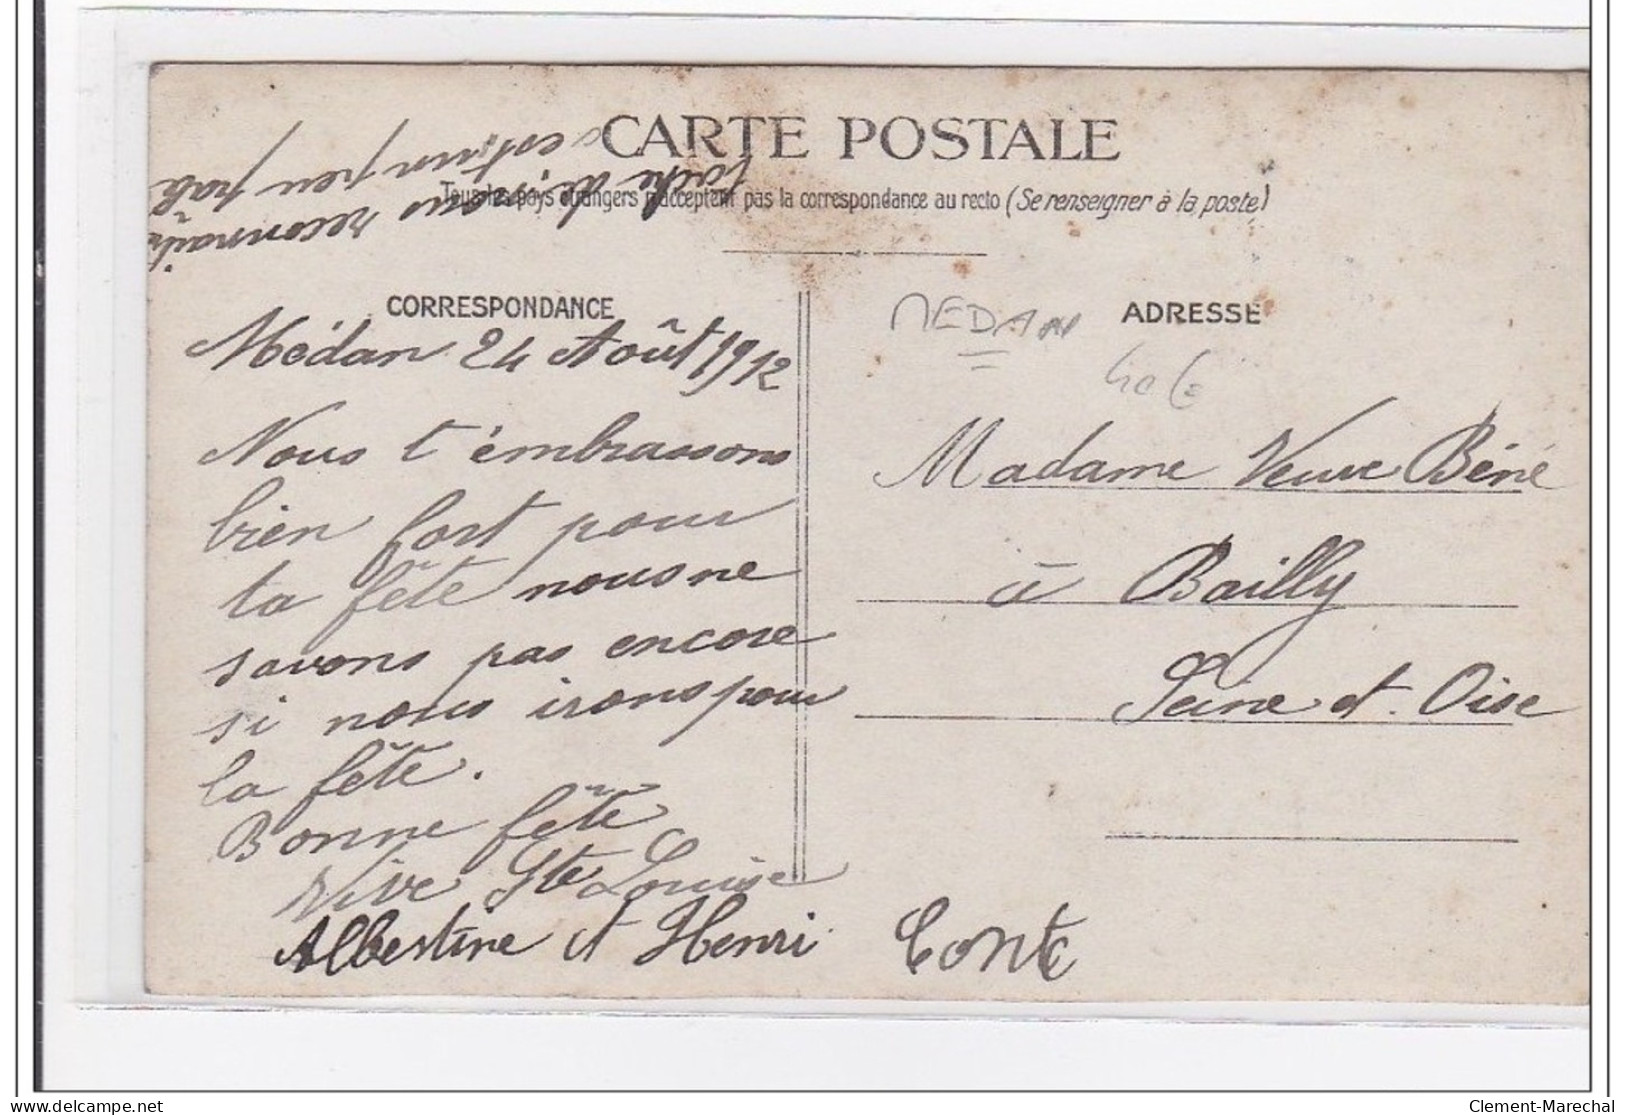 CARTE POSTALE
Tous les pays étrangers n'acceptent pas la correspondance au recto (Se renseigner à la poste)
tache de vous reconnaître
c'est un peu pale
CORRESPONDANCE
Médan 24 Août 1912
Nous t'émbrassons
bien fort pour
ta fête nous ne
savons pas encore
si nous irons pour
la fête.
Bonne fête
Vive Ste Louise
Albertine et Henri Conte
MEDAN
ADRESSE
Madame Veuve Béné
à Bailly
Seine et Oise
delcampe.net
Clement-Marechal